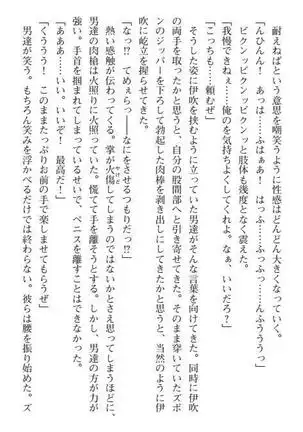 耐えねばという意思を嘲笑うように性感はどんどん大きくなっていく。
「んひんん！　あっは……ふはぁあ！　はっふ……ふっふっ……んふううっ」
ビクンッビクンッビクンッと肢体も幾度となく震えた。
「我慢できねぇ……俺のを気持ちよくしてくれよ。なぁ、いいだろ？」
「こっちも……頼むぜ」
そうした姿に伊吹を挟むように立っていた男達がそんな言葉を向けてきた。同時に伊吹
の両手を取ったかと思うと、自分の股間部へと引き寄せてきた。そのまま穿いていたズボ
ンのジッパーを下ろして勃起した肉棒を剥き出しにしてきたかと思うと、当然のように伊
吹に屹立を握らせてきた。
「なっ？　てめぇらっ――なにをさせるつもりだっ!?」
熱い感触が伝わってくる。掌が火傷してしまうのではないかとさえ思ってしまうほどに、
男達の肉槍は火照りに火照っていた。慌てて手を離そうとする。しかし、男達の方が力が
強い。手首を掴まれてしまっているせいで、ペニスを離すことはできなかった。
「あああ……いい。いいぞ！　最高だ！」
「くううう！　このままたっぷりお前の手で楽しませてもらうぜ」
男達が笑う。もちろん笑みを浮かべるだけでは終わらない。彼らは腰を振り始めた。ズ